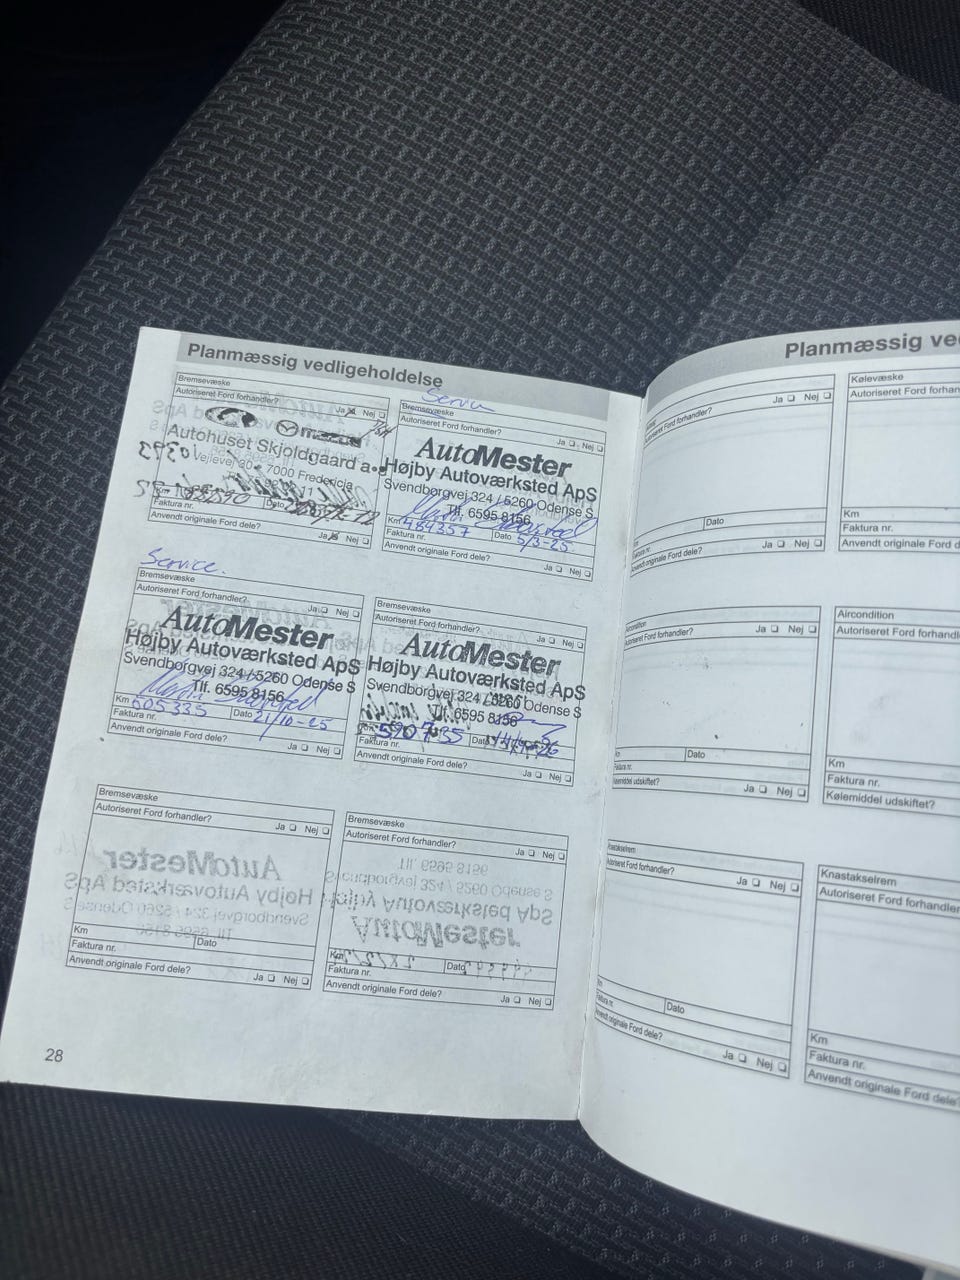 Planmæssig vedligeholdelse
Bremsevæske
Autoriseret Ford forhandler?
Ja Nej
Autohuset Skjoldgaard a.
Vejlevej 30 - 7000 Fredericia
Km
Dato
Faktura nr.
Anvendt originale Ford dele?
Ja Nej
Service
Bremsevæske
Autoriseret Ford forhandler?
Ja Nej
AutoMester
Højby Autoværksted ApS
Svendborgvej 324 / 5260 Odense S
Tlf. 6595 8156
Km 484357 Dato 5/3-25
Faktura nr.
Anvendt originale Ford dele?
Ja Nej
Service.
Bremsevæske
Autoriseret Ford forhandler?
Ja Nej
AutoMester
Højby Autoværksted ApS
Svendborgvej 324 / 5260 Odense S
Tlf. 6595 8156
Km 605335 Dato 21/10-25
Faktura nr.
Anvendt originale Ford dele?
Ja Nej
Bremsevæske
Autoriseret Ford forhandler?
Ja Nej
AutoMester
Højby Autoværksted ApS
Svendborgvej 324 / 5260 Odense S
Tlf. 6595 8156
Dato
Faktura nr.
Anvendt originale Ford dele?
Ja Nej
Bremsevæske
Autoriseret Ford forhandler?
Ja Nej
Km Dato
Faktura nr.
Anvendt originale Ford dele?
Ja Nej
Bremsevæske
Autoriseret Ford forhandler?
Ja Nej
Km Dato
Faktura nr.
Anvendt originale Ford dele?
Ja Nej
28
Planmæssig ve
forhandler?
Ja Nej
Dato
Faktura nr.
Anvendt originale Ford dele?
Ja Nej
Kølevæske
Autoriseret Ford forhan
Km
Faktura nr.
Anvendt originale Ford d
Aircondition
Autoriseret Ford forhandler?
Ja Nej
Dato
Kølemiddel udskiftet?
Ja Nej
Aircondition
Autoriseret Ford forhandl
Km
Faktura nr.
Kølemiddel udskiftet?
Knastakselrem
Autoriseret Ford forhandler?
Ja Nej
Dato
Faktura nr.
Anvendt originale Ford dele?
Ja Nej
Knastakselrem
Autoriseret Ford forhandle
Km
Faktura nr.
Anvendt originale Ford dele?